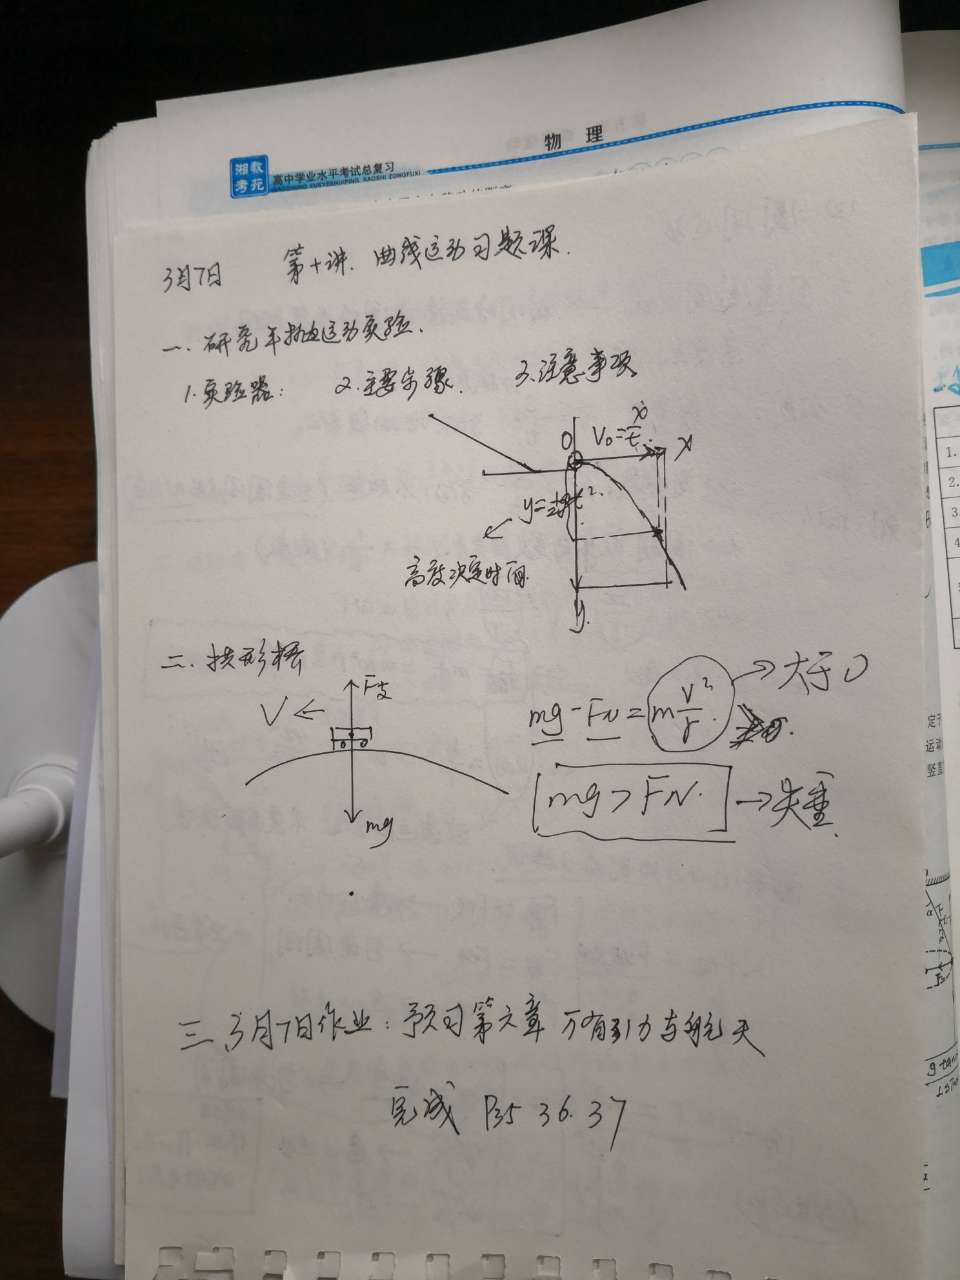 物 理
湘教考苑
高中学业水平考试总复习
3月7日 第十讲. 曲线运动习题课.
一.研究平抛运动实验.
1.实验器: 2.主要步骤. 3.注意事项
O V₀=x/t. x
y=½gt².
高度决定时间.
y.
二.拱形桥
F支
V
mg
mg-FN=m v²/r. →大于0
mg>FN. →失重.
三.3月7日作业:预习第六章 万有引力与航天
完成 P35 36.37
1.
2.
3.
4
定
运动
竖直